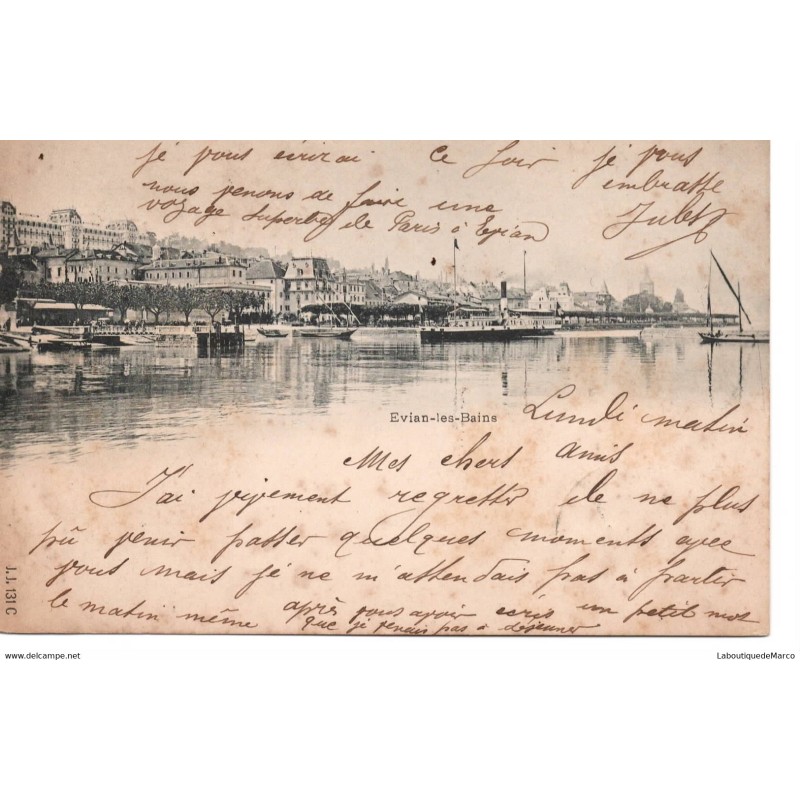 je vous écrirai ce soir je vous
nous venons de faire une embrasse
voyage superbe de Paris à Evian Jules
Evian-les-Bains
Lundi matin
Mes chers amis
J'ai vivement regretter de ne plus
pû venir passer quelques moments avec
vous mais je ne m'attendais pas à partir
le matin même après vous avoir ecris un petit mot
que je venais pas à déjeuner
J.J. 131 C
www.delcampe.net
LaboutiquedeMarco